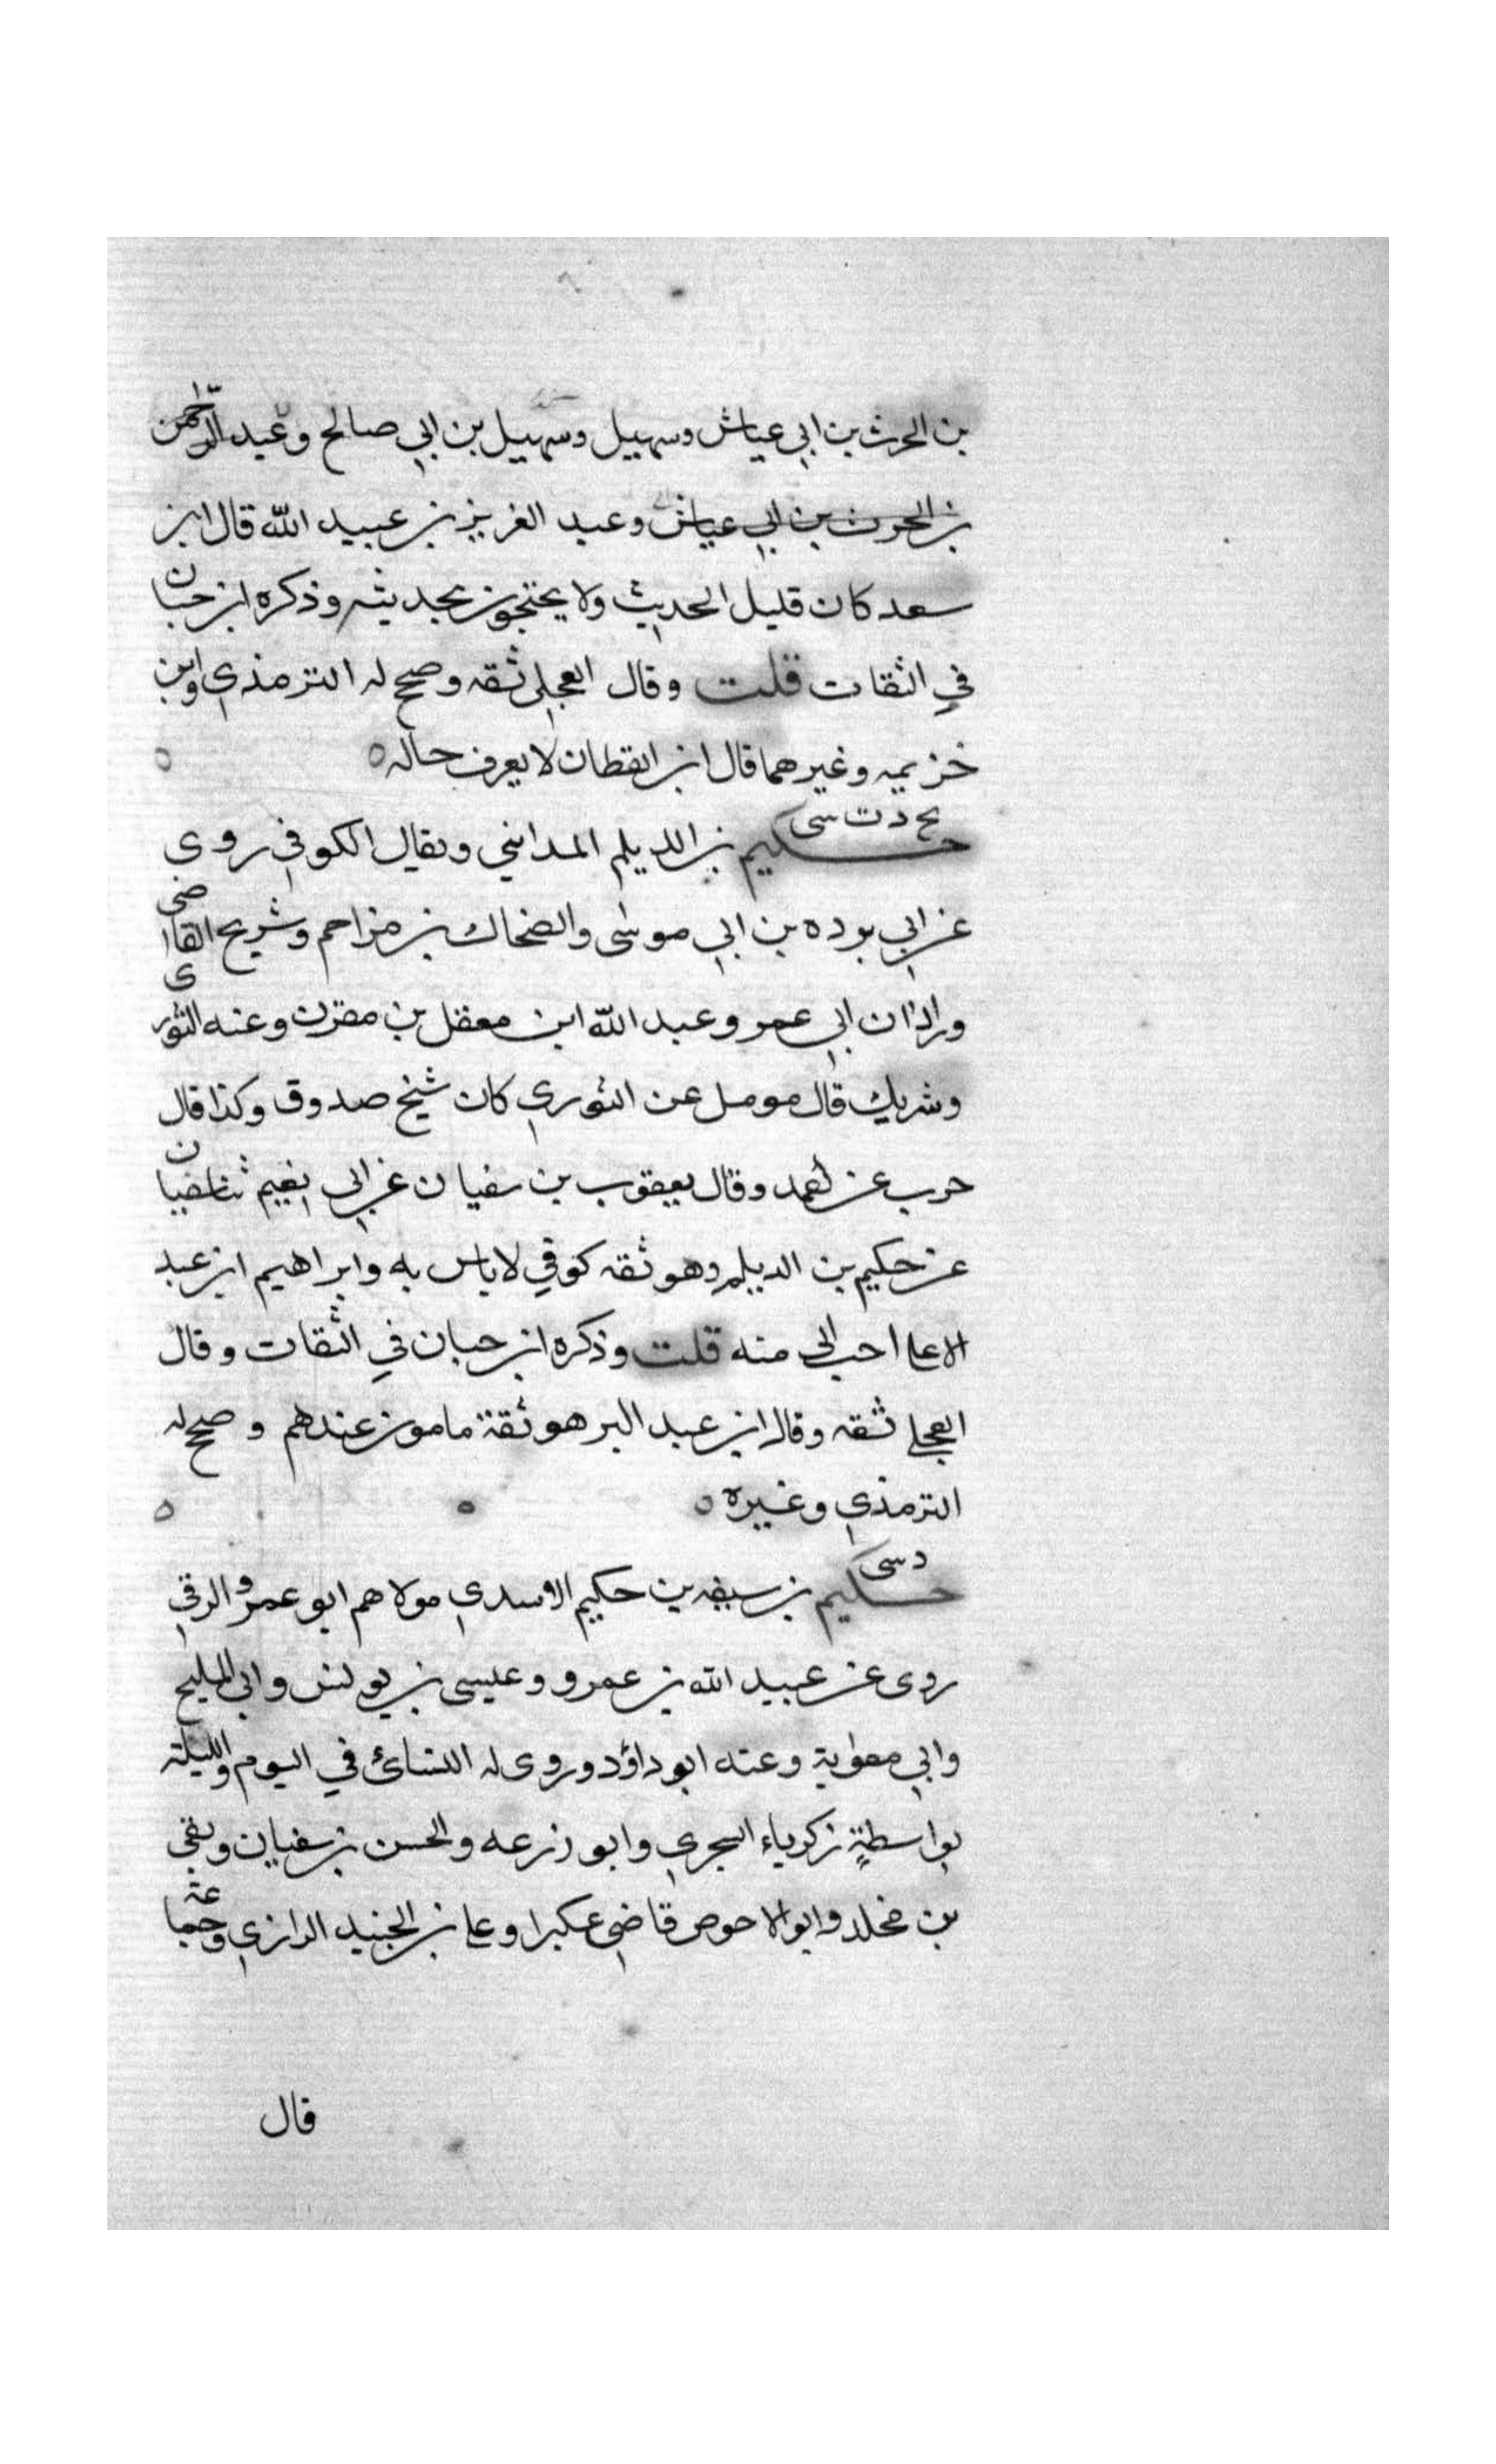 بن الحرث بن ابي عياش وسهيل وسهيل بن ابي صالح وعبد الرحمن
بن الحرث بن ابي عياش وعبد العزيز بن عبيد الله قال ابن
سعد كان قليل الحديث ولا يحتجون بحديثه وذكره ابن حبان
في الثقات قلت وقال العجلي ثقه وصحح له الترمذي وابن
خزيمه وغيرهما قال ابن القطان لا يعرف حاله ه ه
بخ د ت سي
حكيم بن الديلم المدايني ويقال الكوفي روى
عن ابي بوده بن ابي موسى والضحاك بن مزاحم وشريح القاضى
وزاذان ابي عمر وعبد الله ابن معقل بن مقرن وعنه الثورى
وشريك قال مومل عن الثوري كان شيخ صدوق وكذا قال
حرب عن احمد وقال يعقوب بن سفيان عن ابي نعيم ثنا سفيان
عن حكيم بن الديلم وهو ثقه كوفي لا باس به وابراهيم ابن عبد
الاعلى احب الي منه قلت وذكره ابن حبان في الثقات وقال
العجلي ثقه وقال ابن عبد البر هو ثقة مامون عندهم وصحح له
الترمذي وغيره ه ه ه
د سي
حكيم بن سيف بن حكيم الاسدي مولاهم ابو عمرو الرقي
روى عن عبيد الله بن عمرو وعيسى بن يونس وابي المليح
وابي معوية وعنه ابو داؤد وروى له النسائ في اليوم والليلة
بواسطة زكرياء السجزي وابو زرعه والحسن بن سفيان وبقي
بن مخلد وابو الاحوص قاضي عكبرا وعلي بن الجنيد الرازي وجماعة
قال